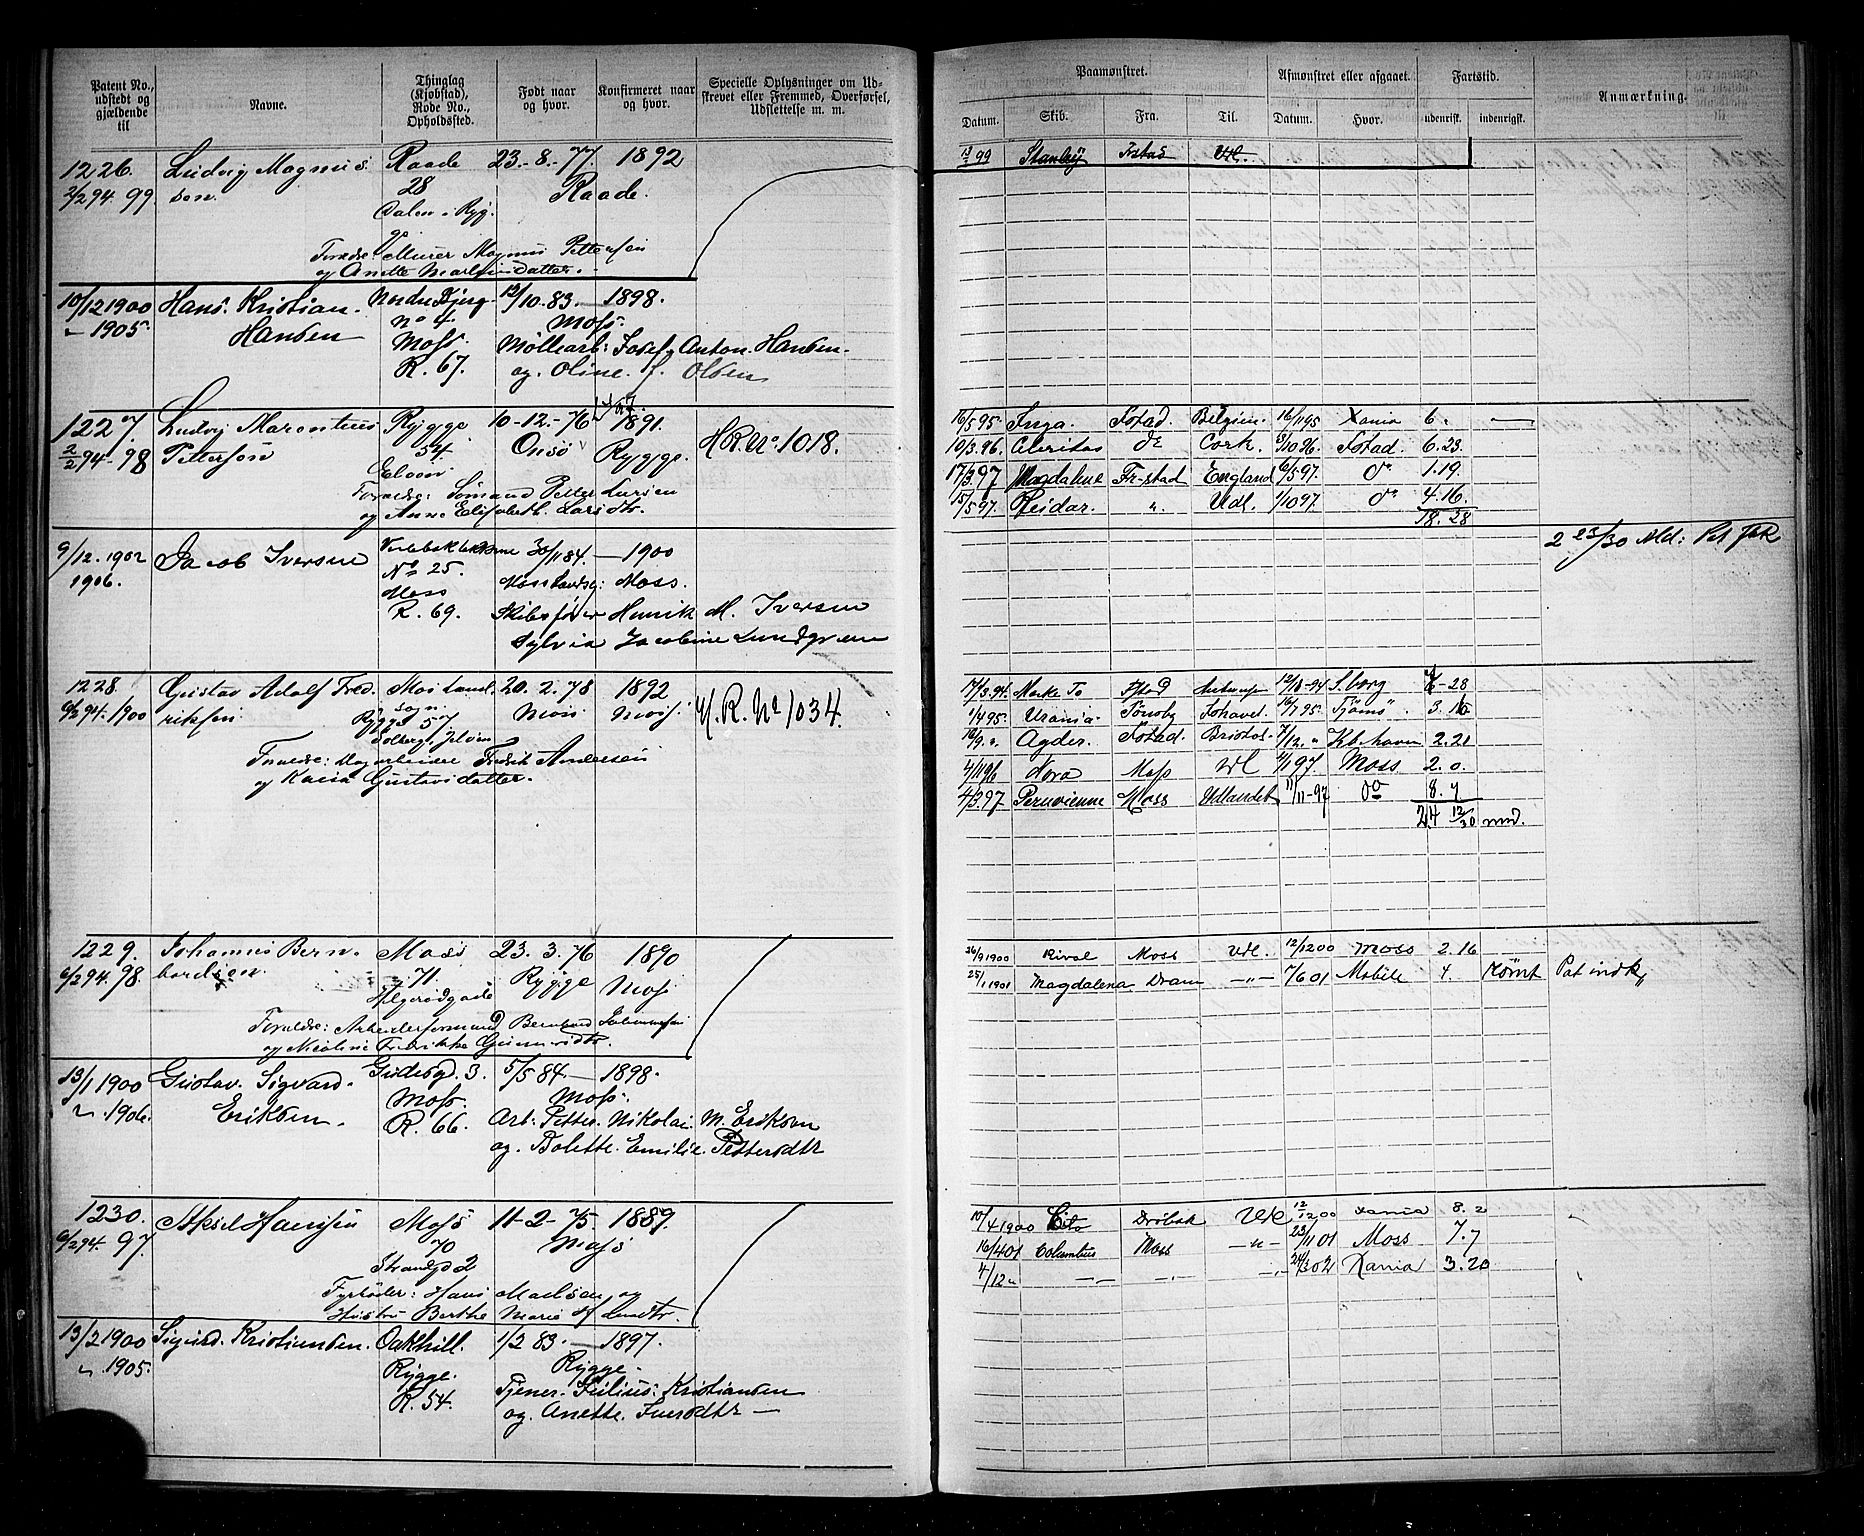 Patent No., udstedt og gjældende til
Navne.
Thinglag (Kjøbstad), Rode No., Opholdssted.
Født naar og hvor.
Konfirmeret naar og hvor.
Specielle Oplysninger om Udskrevet eller Fremmed, Overførsel, Udslettelse m. m.
1226. Ludvig Magnus Raade 23-8-77. 1892
2/2 94. 99. sen. 28 Raade.
Dalen i Ryg-
ge
Foreldre Murer Magnus Pettersen
og Anette Martinsdatter.
10/12 1900 Hans. Kristian. Nordre Bjerg- 12/10. 83. — 1898.
1905. Hansen No 4. Moss.
Moss. Møllearb: Josef. Anton. Hansen.
R. 67. og. Oline. f. Olsen
1227. Ludvig Marentius Rygge 10-12-76 1891.
2/2 94-98 Pettersen 54 Onsø Rygge. H.R. No. 1018.
Eloen
Foreldre: Sømand Petter Larsen
og Anne Elisabeth Larsdtr.
9/12. 1902 Jacob Iversen 30/11 84. — 1900
1906. No 25. Moss Landsg: Moss.
Moss
R. 69. Skibsfører Henrik M. Iversen
Sylvia Jacobine Lundgreen
1228. Gustav Adolf Fred. Moss Land. 20. 2. 78 1892
6/2 94. 1900 riksen sogn. Moss Moss. H. R. No 1034.
Rygge 57
Solberg, Jeløen
Foreldre: Dagarbeider Fredrik Andersen
og Karin Gustavsdatter.
1229. Johannes Bern. Moss 23. 3. 76 1890
6/2 94. 98. hardsen. 71. Rygge Moss
Helgerødgade
Foreldre: Arbeiderformand Bernhard Johannessen
og Nicoline Fredrikke Gunersdtr.
13/1 1900 Gustav. Sigvard. Gudesgd. 3. 5/5 84 — 1898.
1906. Eriksen. Moss. Moss.
R. 66. Arb: Petter. Nikolai. M. Eriksen
og. Bolette. Emilie. Pettersdtr
1230. Aksel Hansen Moss 11-2-75. 1889.
6/2 94. 97. 70 Moss
Strandgd 2
Fyrbøder: Hans Madsen og
Hustru Berthe Marie
13/2 1900 Sigurd. Kristiansen. Oakhill. 1/2 83. — 1897.
1905. Rygge. Rygge.
R. 54. Tjener. Julius. Kristiansen
og. Anette. Iversdtr —
Paamønstret.
Afmønstret eller afgaaet.
Fartstid.
Anmærkning.
Datum. Skib. Fra. Til. Datum. Hvor. udenrisk. indenrigsk.
99 Stanley Fstad Utl.
16/5 95. Inga. Fstad. Belgien. 16/11 95 Xania 6.
10/3. 96. do Cork. 3/10 96. Fstad. 6. 23.
17/3. 97 Magdalene Fr-stad England 6/5 97. do 1. 19.
15/5 97. Reidar. " Udl. 1/10 97. do 4. 16.
18. 28
2 23/30 Ald: Pat Jak
17/3. 94. Fstad S.borg 28
1/4 95. Urania. Tønsby 16/7 95. Tjømø 3. 16
Agder. Fstad. Bristol. 7/12. " Kb.havn 2. 21
4/11 96 Nora Moss Utl 4/1 97. Moss 2. 0.
4/3. 97. Peruvienne Moss Udlandet 11/11-97 do 8. 7.
24 12/30 md.
26/9 1900 Rival Moss Utl. 12/12 00 Moss 2. 16
25/1 1901 Magdalena Dram —"— 7/6 01 Mobile 4. rømt Pat indk,
10/4 1900 Cito Drøbak Utl 12/12 00 Xania 8. 2
16/4 01 Columbus Moss —"— 23/11 01 Moss 7. 7
4/12 " —"— —"— —"— 24/3 02 Xania 3. 20